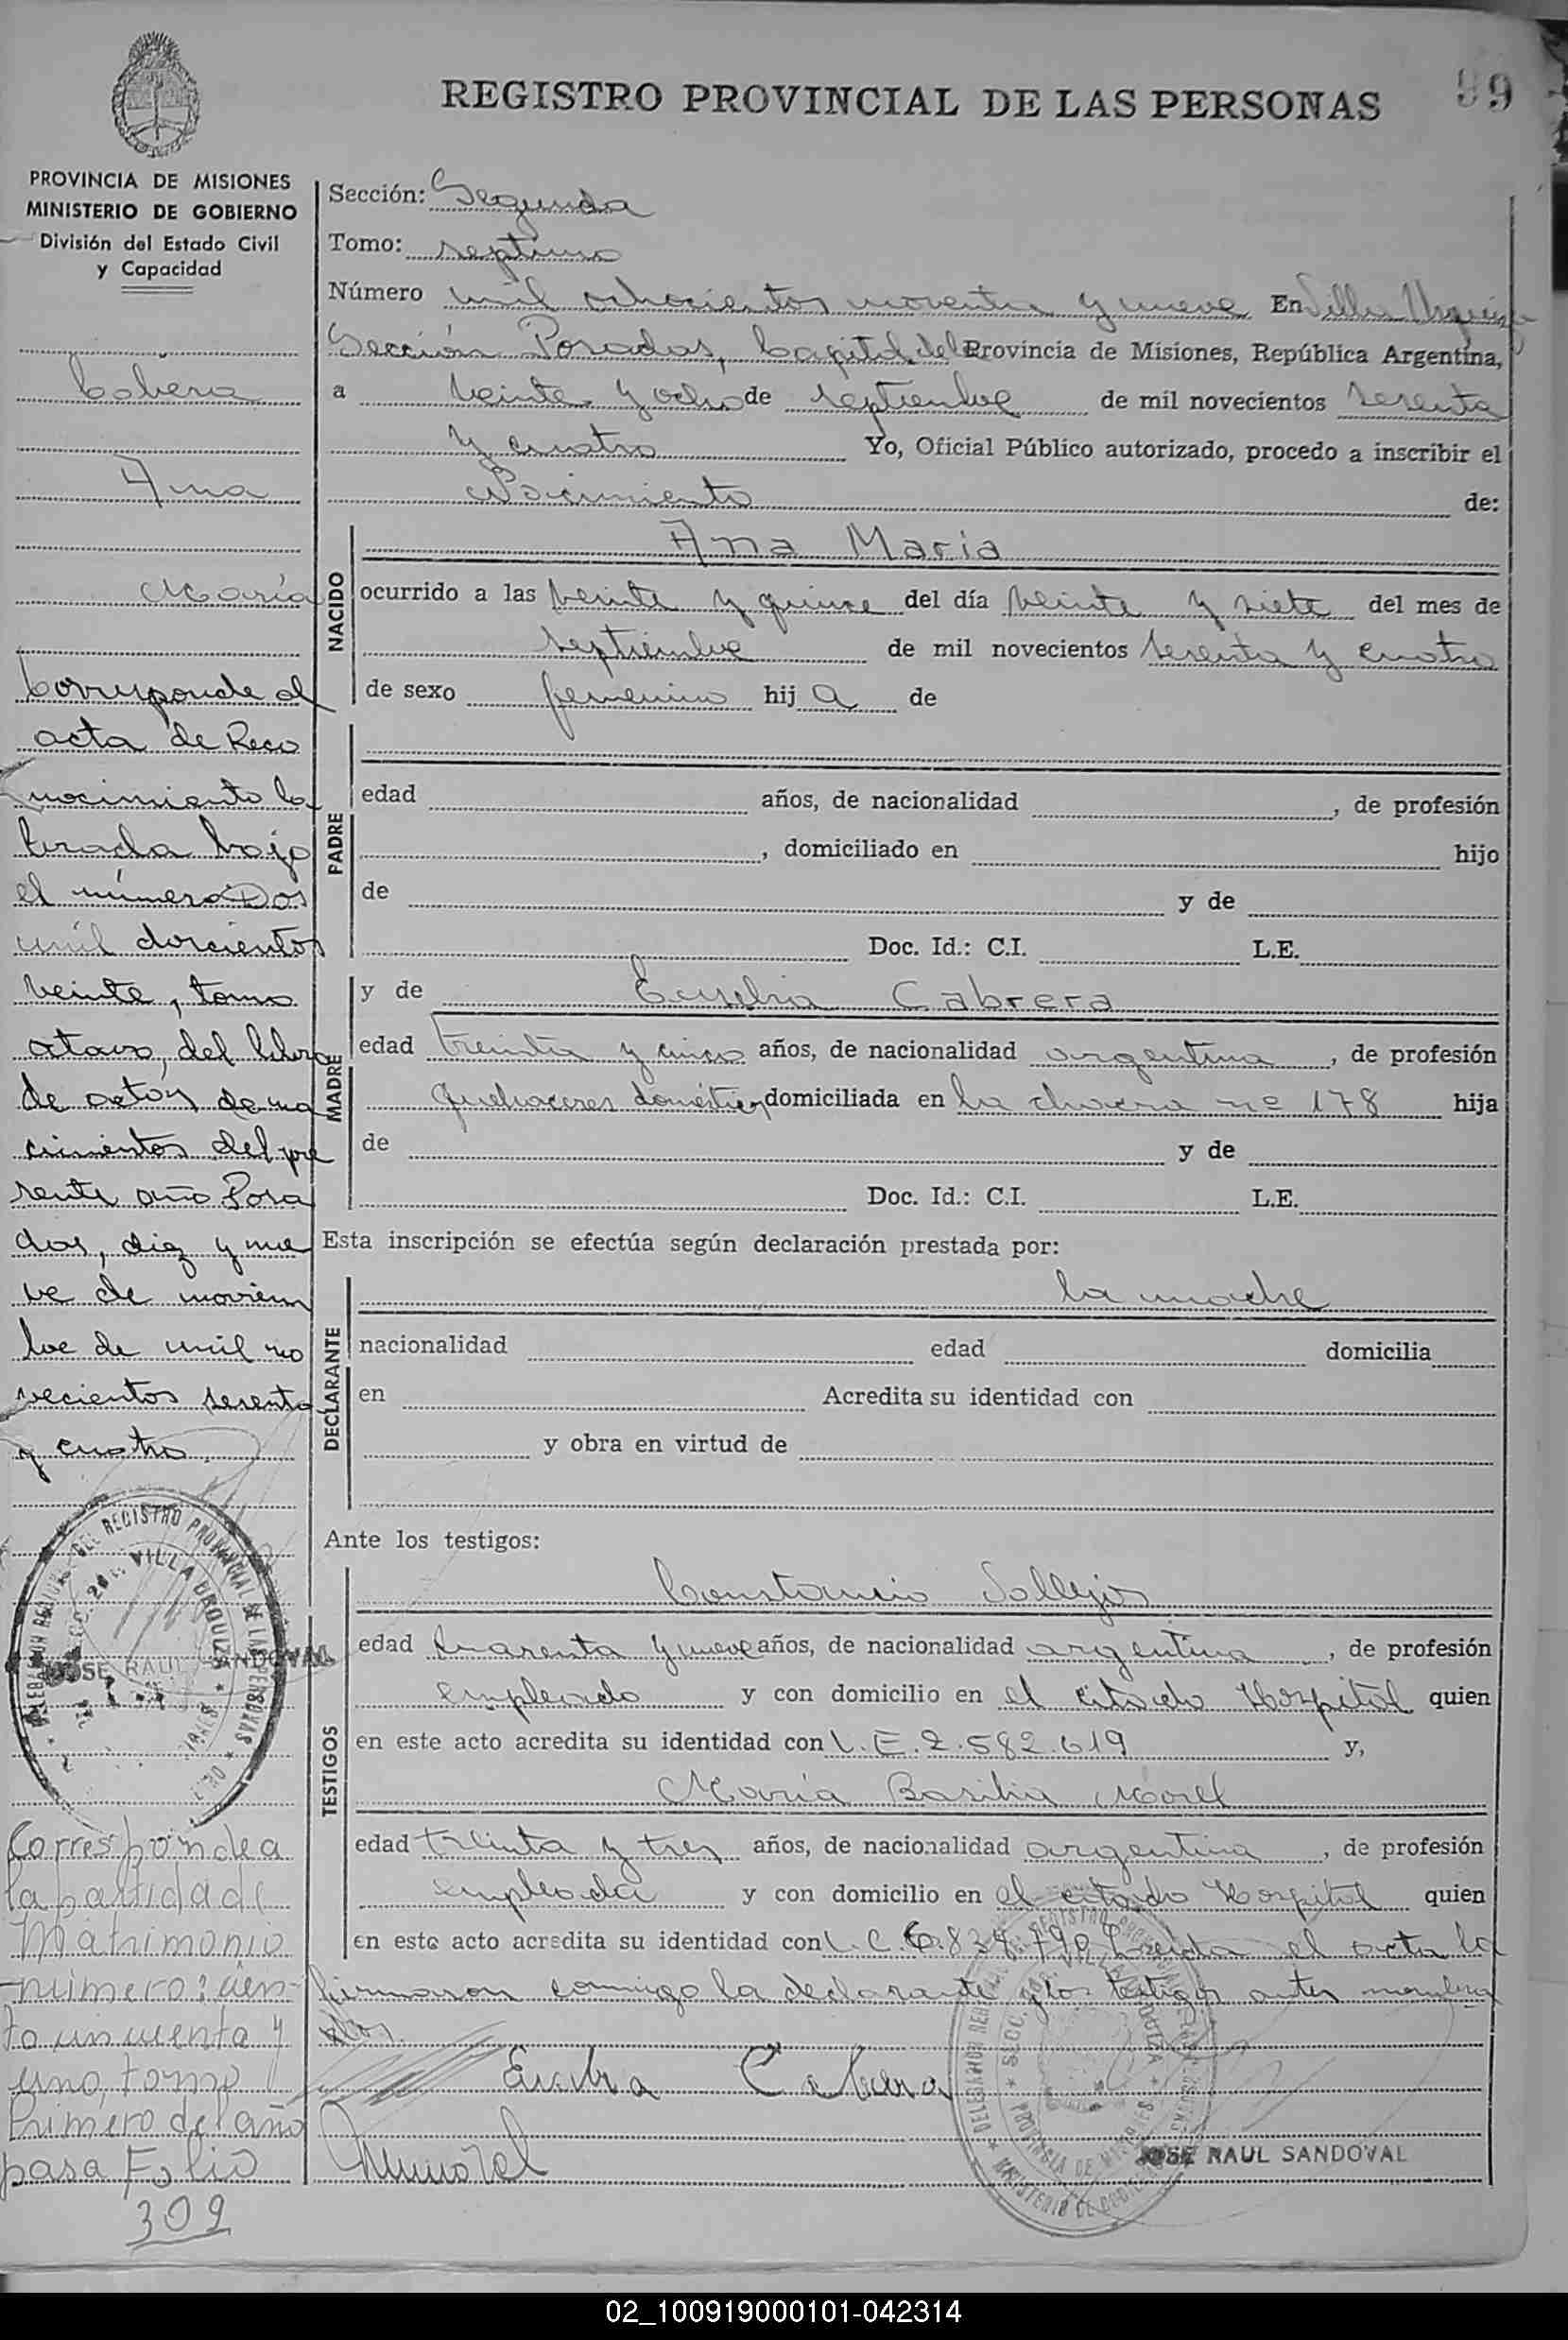 99
REGISTRO PROVINCIAL DE LAS PERSONAS
PROVINCIA DE MISIONES
MINISTERIO DE GOBIERNO
División del Estado Civil
y Capacidad
Cabrera
Ana
María
Corresponde al
acta de Reco
nocimiento la
brada bajo
el número Dos
mil doscientos
veinte, tomo
octavo, del libro
de actas de na
cimientos del pre
sente año Posa
das, diez y nue
ve de noviem
bre de mil no
vecientos sesenta
y cuatro
DELEGACION REGIONAL DEL REGISTRO PROVINCIAL DE LAS PERSONAS
SECC. 2da. VILLA URQUIZA
JOSE RAUL SANDOVAL
Corresponde a
la partida de
Matrimonio
número: cien-
to cincuenta y
uno, tomo
Primero del año
pasa Folio
309
Sección: Segunda
Tomo: septimo
Número mil ochocientos noventa y nueve En Villa Urquiza
Sección Posadas, Capital de la Provincia de Misiones, República Argentina,
a veinte y ocho de septiembre de mil novecientos sesenta
y cuatro Yo, Oficial Público autorizado, procedo a inscribir el
Nacimiento de:
NACIDO
Ana María
ocurrido a las veinte y quince del día veinte y siete del mes de
septiembre de mil novecientos sesenta y cuatro
de sexo femenino hij a de
PADRE
edad años, de nacionalidad , de profesión
, domiciliado en hijo
de y de
Doc. Id.: C.I. L.E.
MADRE
y de Eusebia Cabrera
edad treinta y cinco años, de nacionalidad argentina, de profesión
quehaceres domésticos domiciliada en la chacra nº 178 hija
de y de
Doc. Id.: C.I. L.E.
Esta inscripción se efectúa según declaración prestada por:
DECLARANTE
la madre
nacionalidad edad domicilia
en Acredita su identidad con
y obra en virtud de
Ante los testigos:
TESTIGOS
Constancio Vallejos
edad cuarenta y nueve años, de nacionalidad argentina, de profesión
empleado y con domicilio en el citado Hospital quien
en este acto acredita su identidad con L.E. 2.582.619 y,
María Basilia Morel
edad treinta y tres años, de nacionalidad argentina, de profesión
empleada y con domicilio en el citado Hospital quien
en este acto acredita su identidad con L.C. Leida el acta la
firmaron conmigo la declarante y los testigos antes nombra
dos.
Eusebia Cabrera
JOSE RAUL SANDOVAL
02_100919000101-042314